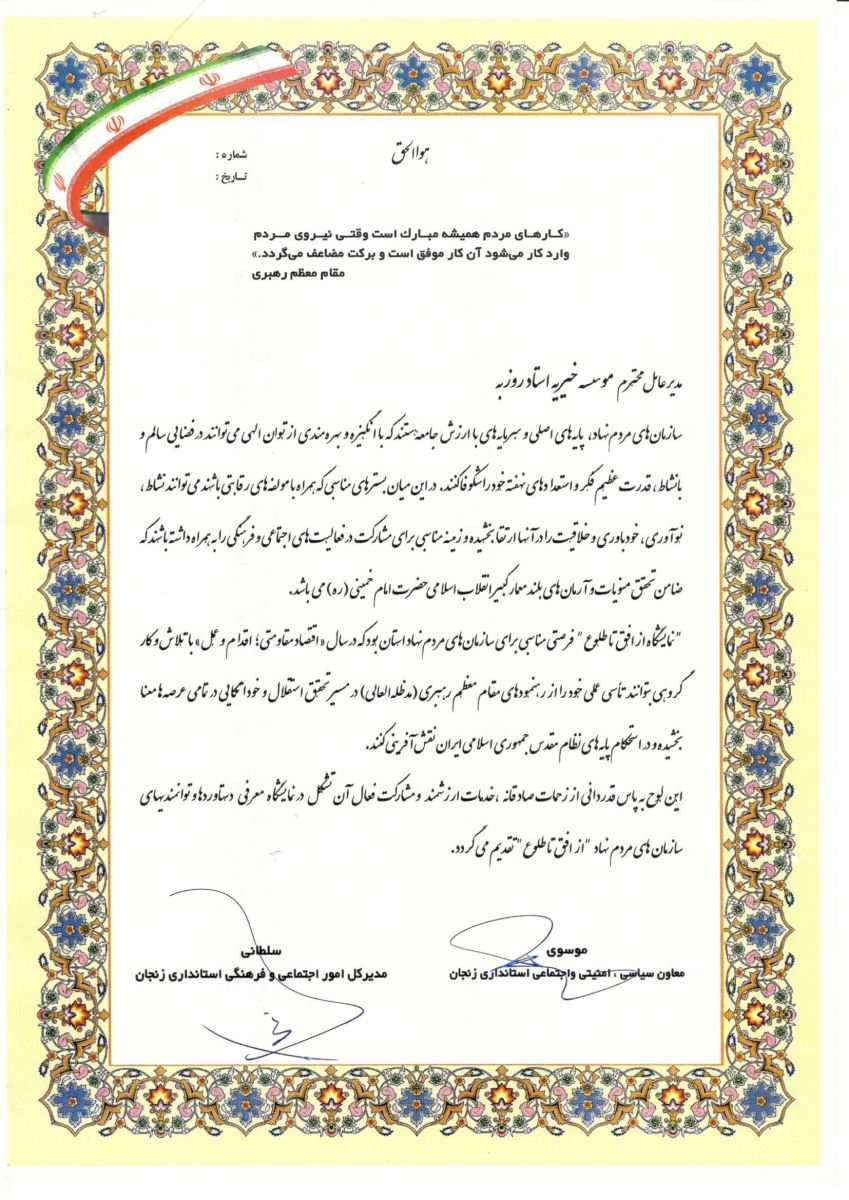 هو الحق
شماره :
تاریخ :
«کارهای مردم همیشه مبارک است وقتی نیروی مردم
وارد کار می‌شود آن کار موفق است و برکت مضاعف می‌گردد.»
مقام معظم رهبری
مدیرعامل محترم موسسه خیریه استاد روزبه
سازمان‌های مردم نهاد، پایه‌های اصلی و سرمایه‌های با ارزش جامعه هستند که با انگیزه و بهره مندی از توان الهی می‌توانند در فضایی سالم و
بانشاط، قدرت عظیم فکر و استعدادهای نهفته خود را شکوفا کنند. در این میان بسترهای مناسبی که همراه با مولفه‌های رقابتی باشند می‌توانند نشاط،
نوآوری، خودباوری و خلاقیت را در آنها ارتقا بخشیده و زمینه مناسبی برای مشارکت در فعالیت‌های اجتماعی و فرهنگی را به همراه داشته باشند که
ضامن تحقق منویات و آرمان‌های بلند معمار کبیر انقلاب اسلامی حضرت امام خمینی (ره) می باشد.
"نمایشگاه از افق تا طلوع" فرصتی مناسبی برای سازمان‌های مردم نهاد استان بود که در سال «اقتصاد مقاومتی؛ اقدام و عمل» با تلاش و کار
گروهی بتوانند تأسی عملی خود را از رهنمودهای مقام معظم رهبری (مدظله العالی) در مسیر تحقق استقلال و خوداتکایی در تمامی عرصه‌ها معنا
بخشیده و در استحکام پایه‌های نظام مقدس جمهوری اسلامی ایران نقش آفرینی کنند.
این لوح به پاس قدردانی از زحمات صادقانه، خدمات ارزشمند و مشارکت فعال آن تشکل در نمایشگاه معرفی دستاوردها و توانمندیهای
سازمان های مردم نهاد "از افق تا طلوع" تقدیم می گردد.
موسوی
معاون سیاسی ، امنیتی واجتماعی استانداری زنجان
سلطانی
مدیرکل امور اجتماعی و فرهنگی استانداری زنجان